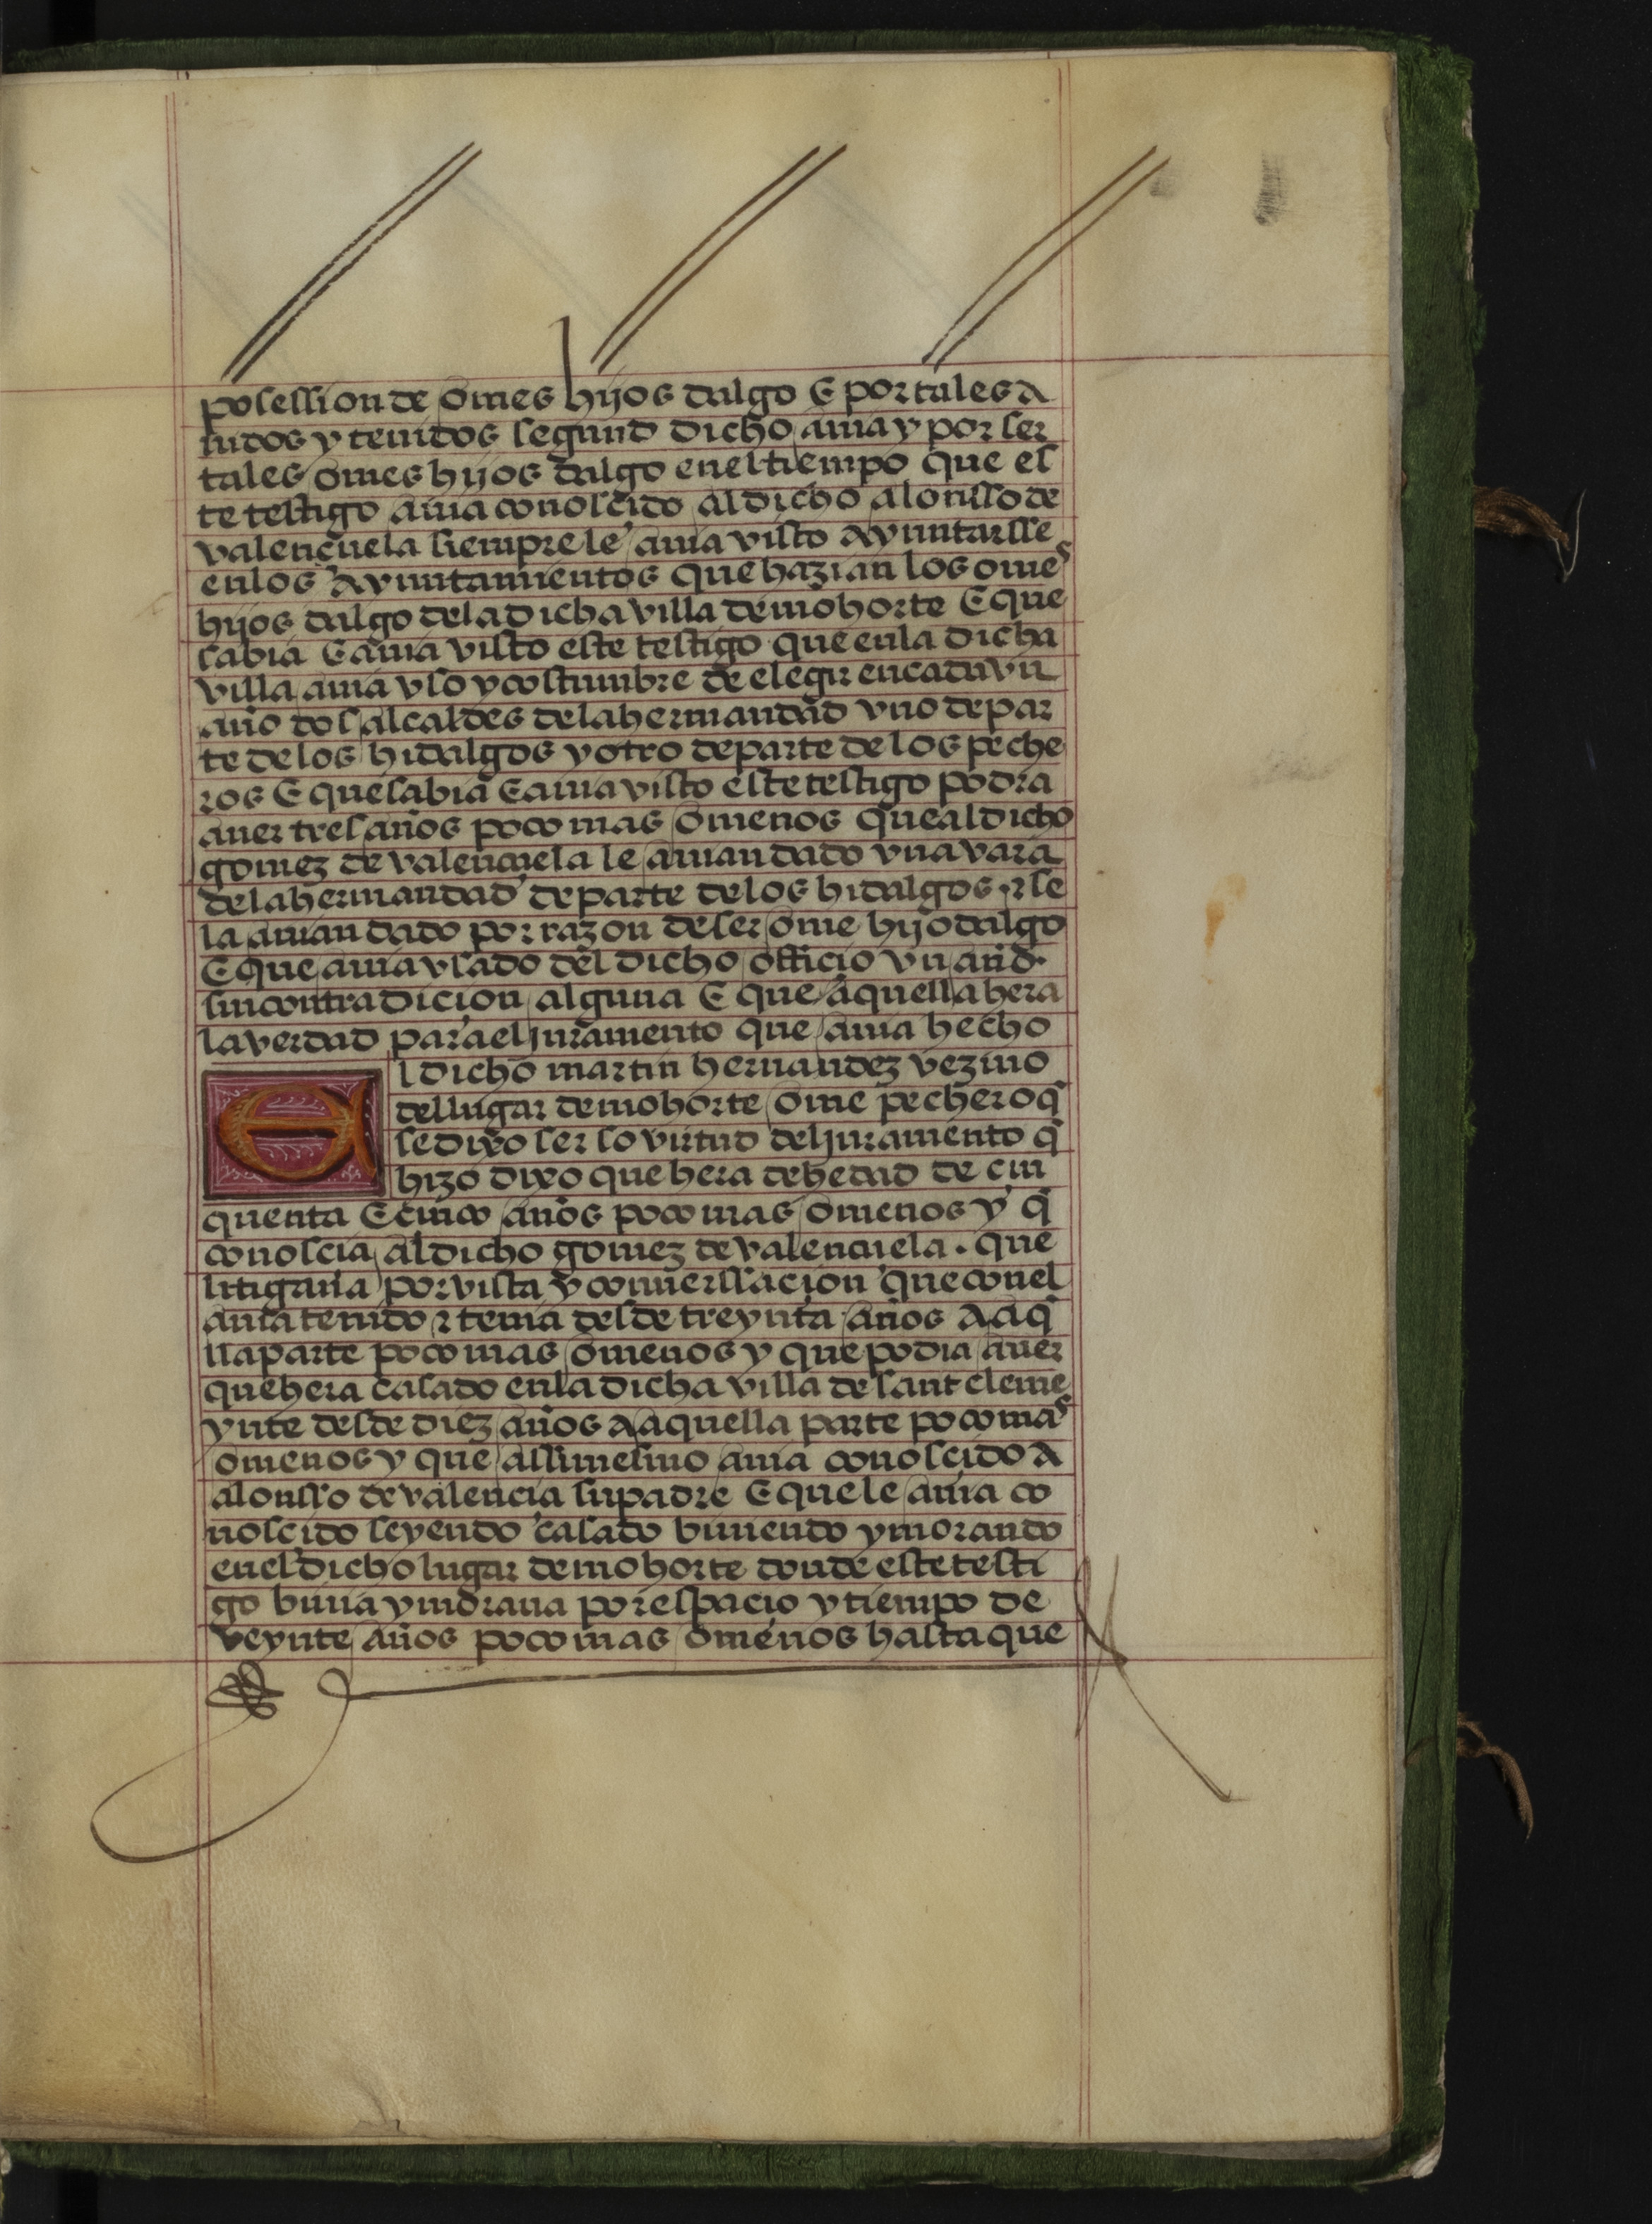 posession de omes hijos dalgo E por tales a
uidos y tenidos segund dicho auia y por ser
tales omes hijos dalgo en el tiempo que es
te testigo auia conoscido al dicho alonsso de
valençuela siempre le auia visto ayuntarsse
en los ayuntamientos que hazian los omes
hijos dalgo de la dicha villa de mohorte E que
sabia E auia visto este testigo que en la dicha
villa auia vso y costumbre de elegir en cada vn
año dos alcaldes de la hermandad vno de par
te de los hidalgos y otro de parte de los peche
ros E que sabia E auia visto este testigo podra
auer tres años poco mas o menos que al dicho
gomez de valençuela le auian dado vna vara
de la hermandad de parte de los hidalgos . z se
la auian dado por razon de ser ome hijo dalgo
E que auia vsado del dicho officio vn año.
sin contradicion alguna E que aquella hera
la verdad para el juramento que auia hecho
El dicho martin hernandez vezino
del lugar de mohorte ome pechero q̄
se dixo ser so virtud del juramento q̄
hizo dixo que hera de hedad de cin
quenta E cinco años poco mas o menos y q̄
conoscia al dicho gomez de valençuela . que
litigaua por vista y conuerssacion que con el
auia tenido z tenia desde treynta años a aq̄
lla parte poco mas o menos y que podia auer
que hera casado en la dicha villa de sant cleme
ynte desde diez años a aquella parte poco mas
o menos y que assimesmo auia conoscido a
alonsso de valencia su padre E que le auia co
noscido seyendo casado biuiendo y morando
en el dicho lugar de mohorte donde este testi
go biuia y moraua por espacio y tiempo de
veynte años poco mas o menos hasta que